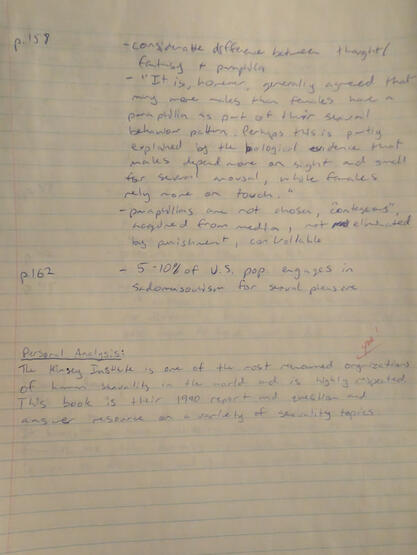 p.158 - considerable difference between thought/
fantasy + paraphilia
- "It is, however, generally agreed that
many more males than females have a
paraphilia as part of their sexual
behavior pattern. Perhaps this is partly
explained by the biological evidence that
males depend more on sight and smell
for sexual arousal, while females
rely more on touch."
- paraphilias are not chosen, "contageous",
acquired from media, not eliminated
by punishment, controllable
p.162 - 5-10% of U.S. pop. engages in
Sadomasochism for sexual pleasure
Personal Analysis:
The Kinsey Institute is one of the most renowned organizations
of human sexuality in the world and is highly respected.
This book is their 1990 report and question and
answer resource on a variety of sexuality topics